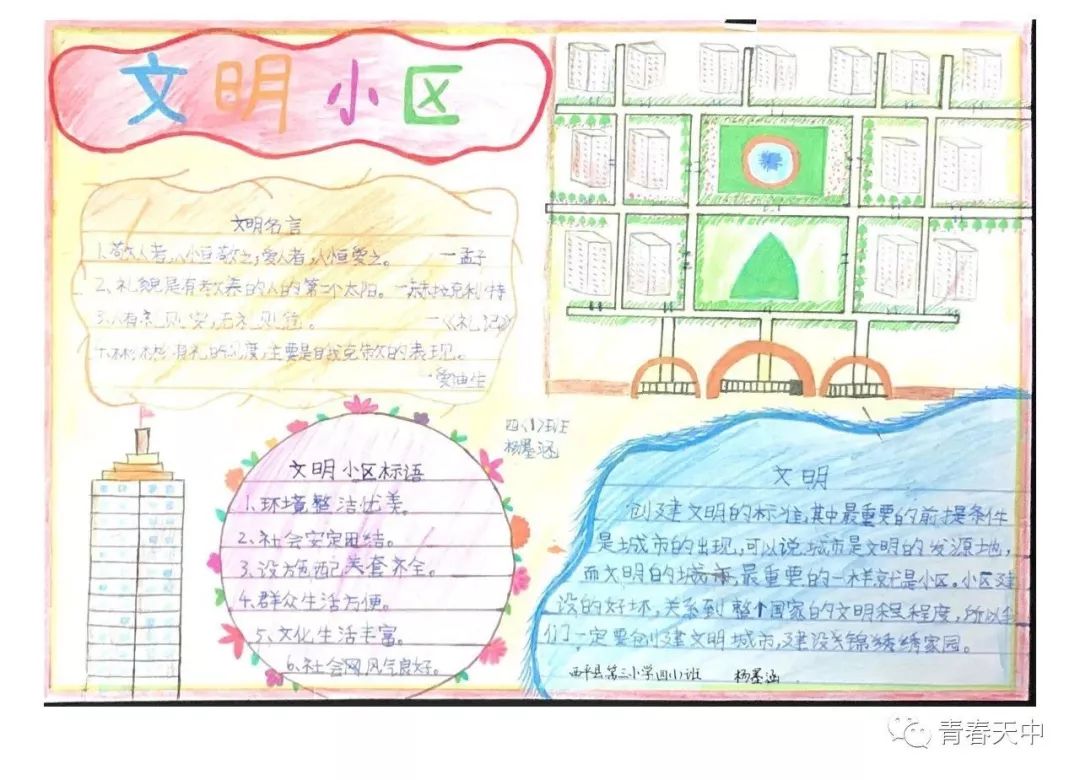 文明小区
文明名言
1、敬人者,人恒敬之;爱人者,人恒爱之。 一孟子
2、礼貌是有教养的人的第二个太阳。一赫拉克利特
3、人有礼则安,无礼则危。 一《礼记》
有礼的风度,主要是自我克制的表现。
·爱迪生
四、(1)班
杨墨涵
文明小区标语
1、环境整洁优美。
2、社会安定团结。
3、设施配套齐全。
4、群众生活方便。
5、文化生活丰富。
6、社会风气良好。
文明
创建文明的标准,其中最重要的前提条件
是城市的出现,可以说城市是文明的发源地,
而文明的城市,最重要的一样就是小区。小区建
设的好坏,关系到整个国家的文明程度,所以我
们一定要创建文明城市,建设锦绣家园。
西平县第三小学四(1)班 杨墨涵
青春天中